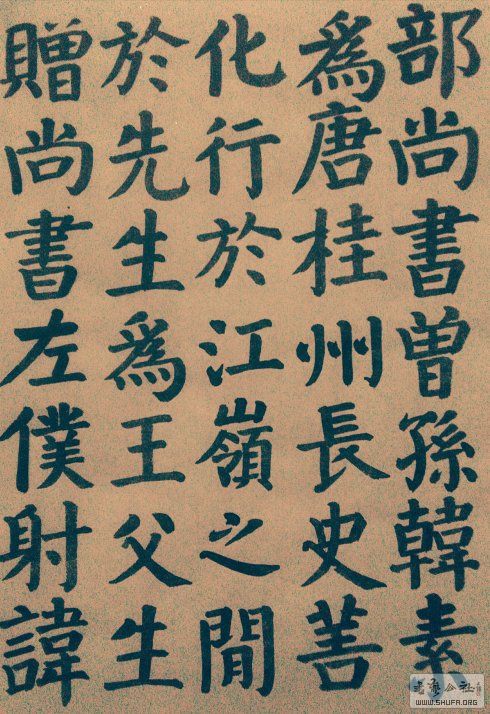 部尚書曾孫韓素
為唐桂州長史善
化行於江嶺之間
於先生為王父生
贈尚書左僕射諱
書藝公社
WWW.SHUFA.ORG